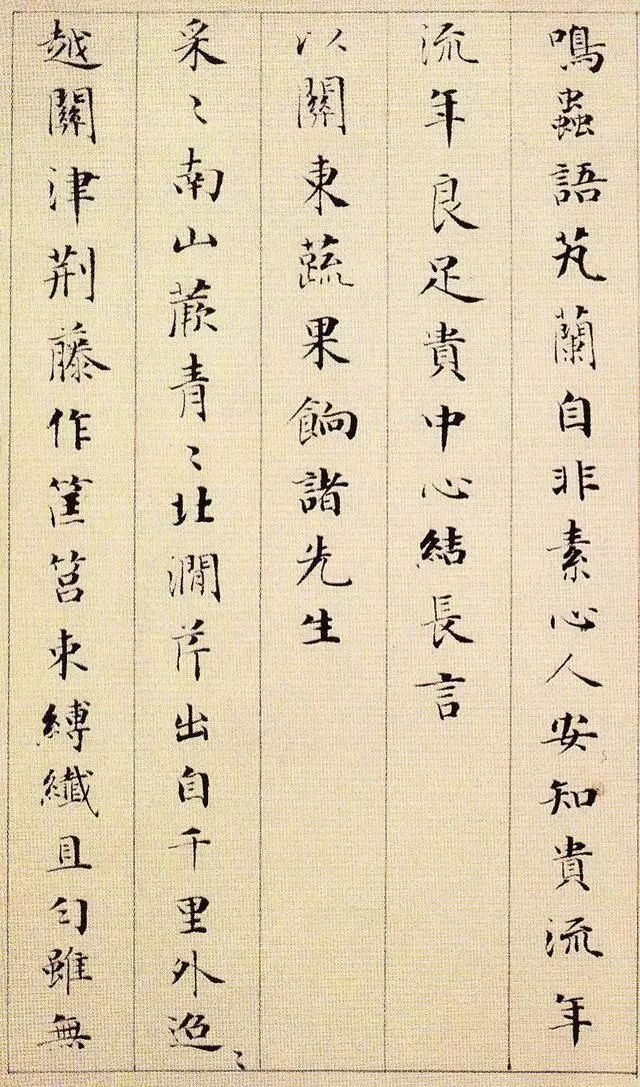 鳴蟲語芄蘭自非素心人安知貴流年
流年良足貴中心結長言
以關東蔬果餉諸先生
采〻南山蕨青〻北澗芹出自千里外迢〻
越關津荆藤作筐筥束縛纖且勻雖無